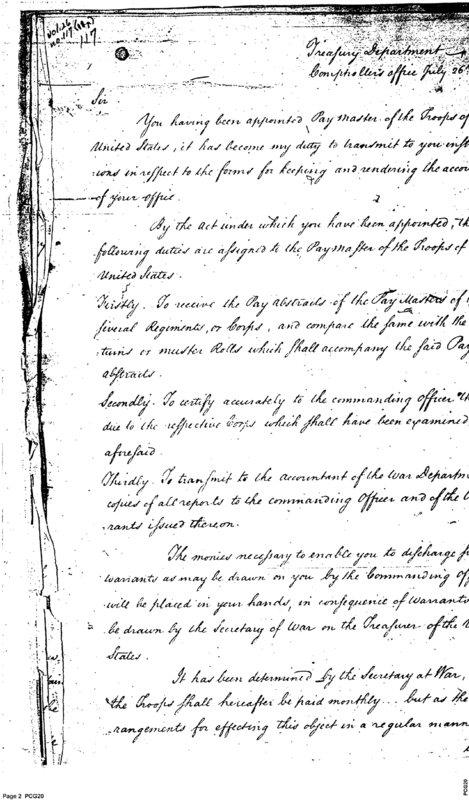 117
Treasury Department
Comptroller's office July 26
Sir
You having been appointed Pay Master of the Troops of
United States, it has become my duty to transmit to you inst
ions in respect to the forms for keeping and rendering the accou
of your office.
By the act under which you have been appointed, th
following duties are assigned to the Paymaster of the Troops of
United States.
Firstly. To receive the Pay abstracts of the Pay Masters of
several Regiments, or Corps, and compare the same with the
turns or muster Rolls which shall accompany the said Pay
abstracts.
Secondly. To certify accurately to the commanding officer th
due to the respective Corps which shall have been examined
aforesaid.
Thirdly. To transmit to the accountant of the War Departm
copies of all reports to the commanding Officer and of the W
rants issued thereon.
The monies necessary to enable you to discharge
warrants as may be drawn on you by the Commanding Off
will be placed in your hands, in consequence of warrants
be drawn by the Secretary of War on the Treasurer of the U
States.
It has been determined by the Secretary at War,
the Troops shall hereafter be paid monthly... but as the
rangements for effecting this object in a regular mann
Page 2 PCG20
PCG20